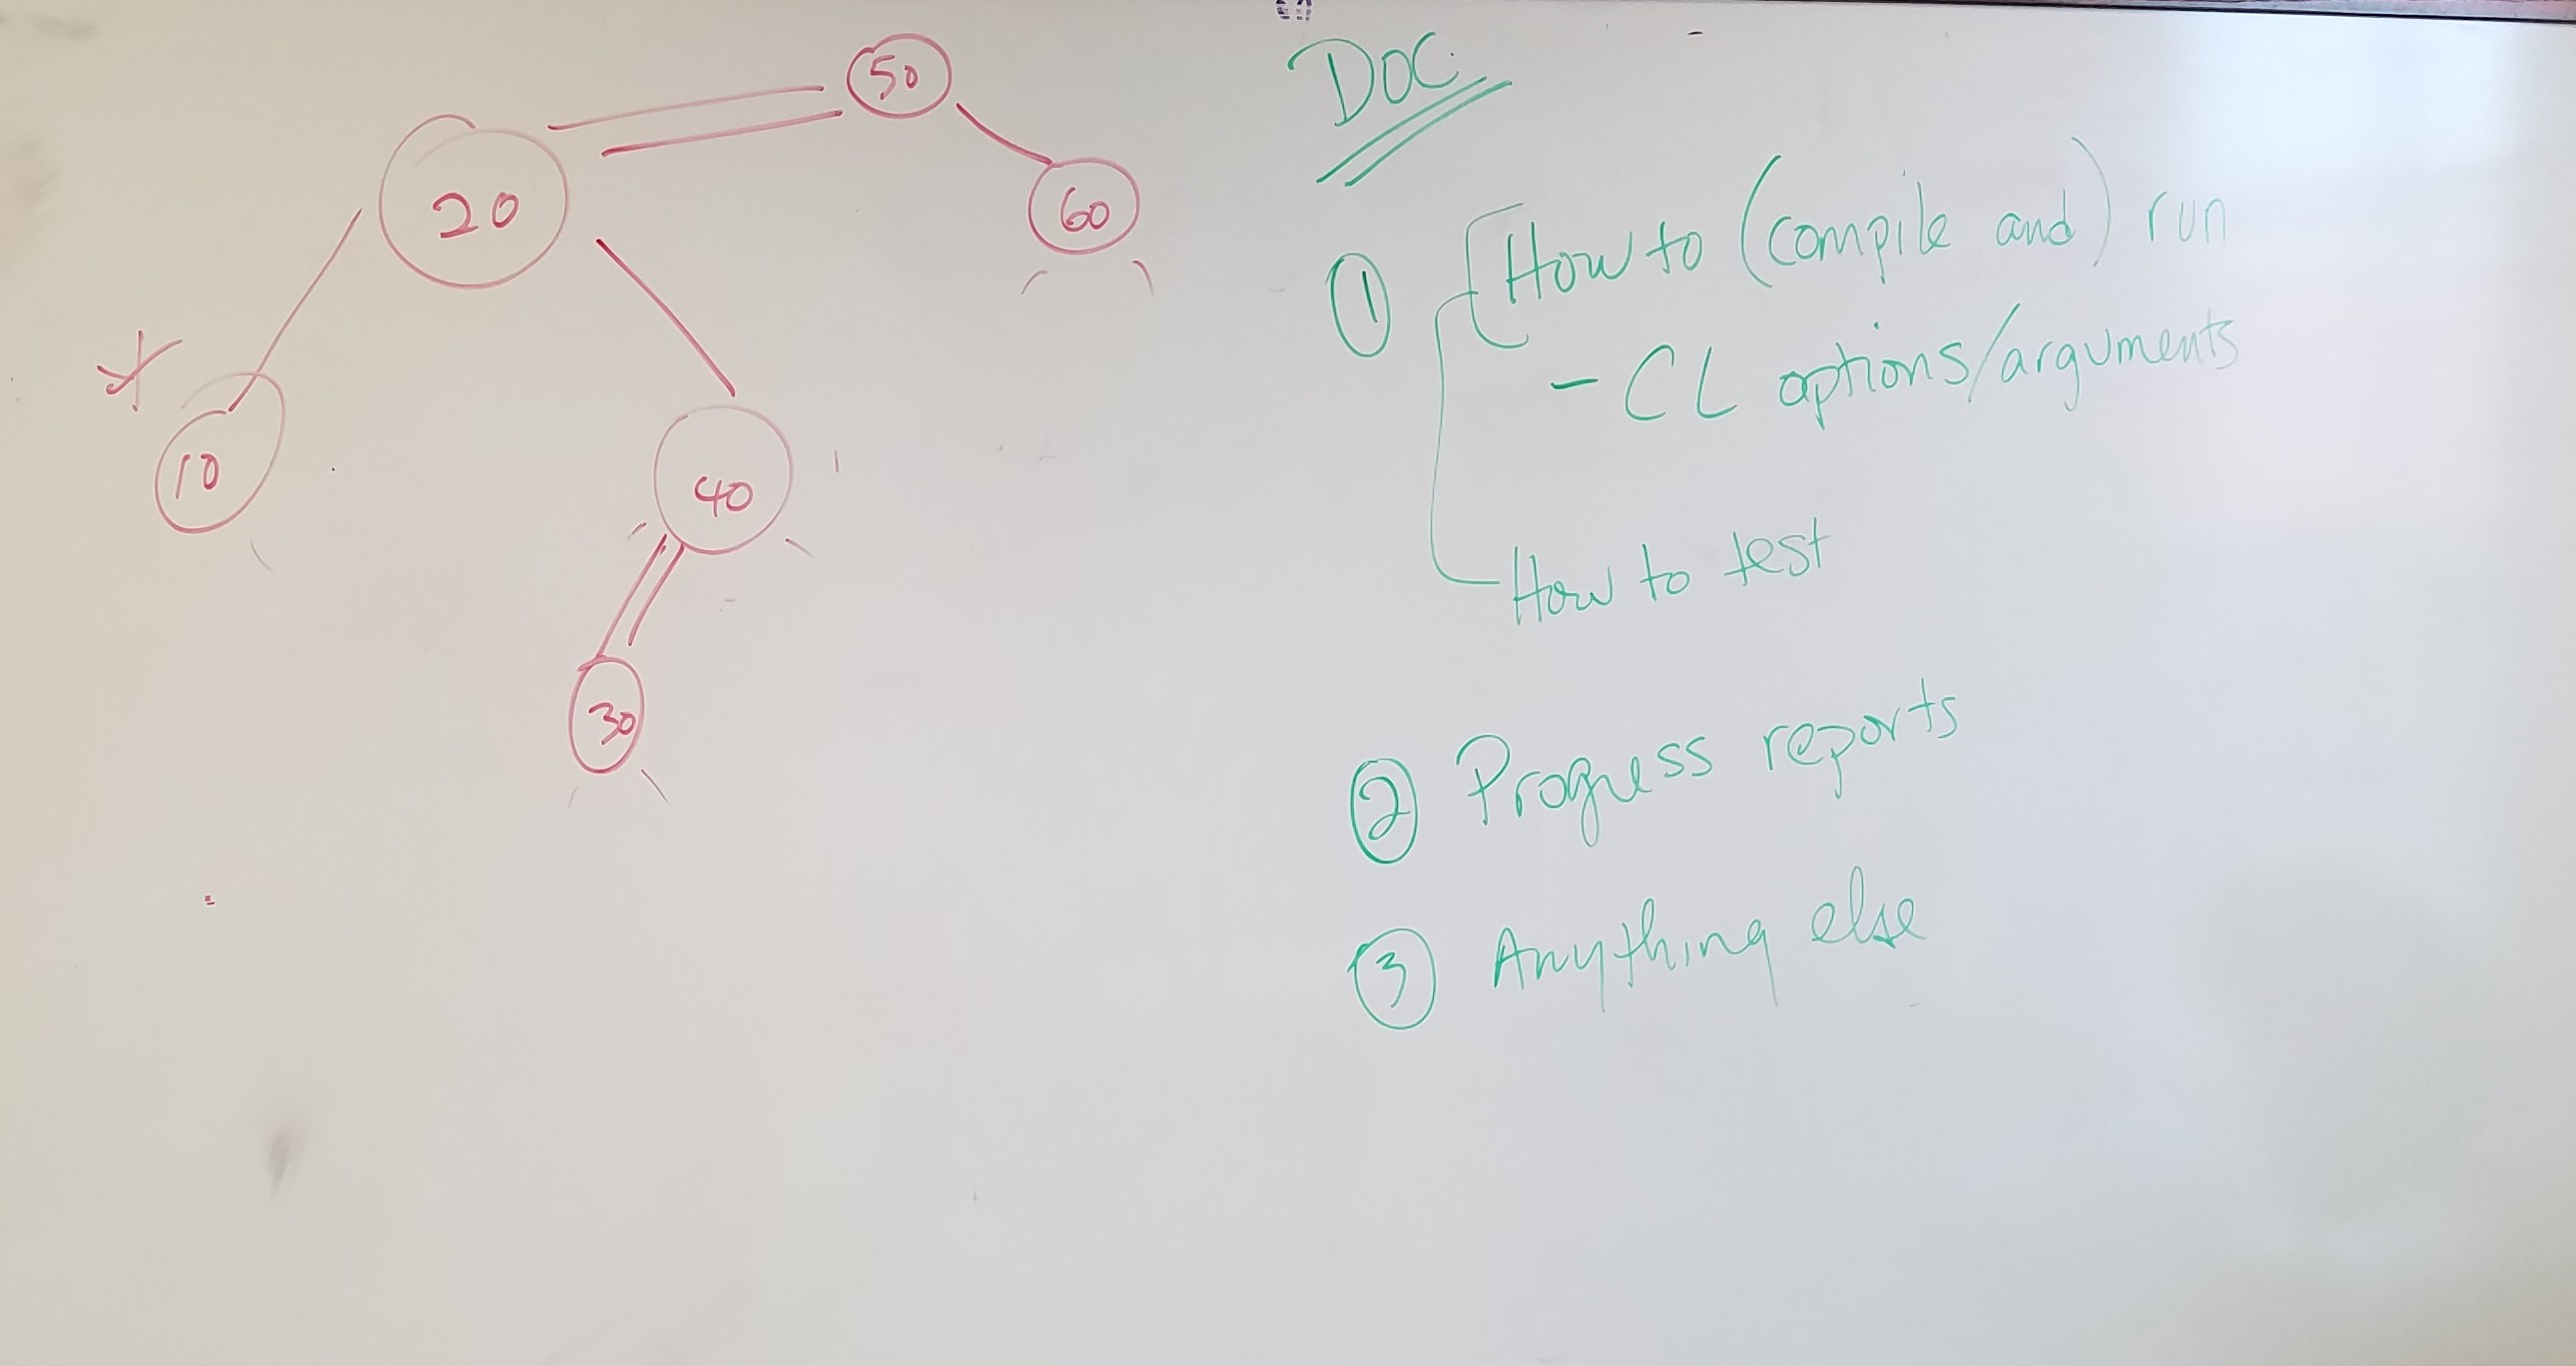 50
20
60
10
40
30
DOC
① How to (compile and) run
- CL options/arguments
How to test
② Progress reports
③ Anything else